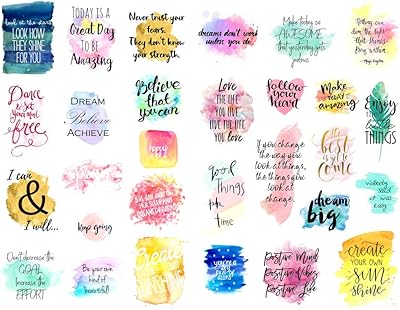 look at the stars
LOOK HOW
THEY SHINE
FOR YOU
TODAY IS A
Great Day
TO BE
Amazing
Never trust your
fears.
They don't know
your strength.
dreams don't work
unless you do.
Make today
so
AWESOME
that yesterday gets
jealous
Nothing can
dim the light
that shines
from within.
Dance
& set
your soul
free
DREAM
Believe
ACHIEVE
Believe
that
you can
happy
LOVE
THE LIFE
YOU LIVE
LIVE THE LIFE
YOU LOVE
Follow
your
heart
Make
TODAY
amazing
Enjoy
the
little
THINGS
I can
&
I will...
Keep going
good
THINGS
take
TIME
If you change
the way you
look at things,
the things you
look at
change.
the
best
is yet to
come
dream
big
nobody
said it
was easy
Don't decrease the
GOAL
Increase the
EFFORT
Be your own
kind of
beautiful
Create
SUNSHINE
Positive Mind
Positive Vibes
Positive Life
create
YOUR OWN
SUN
SHINE